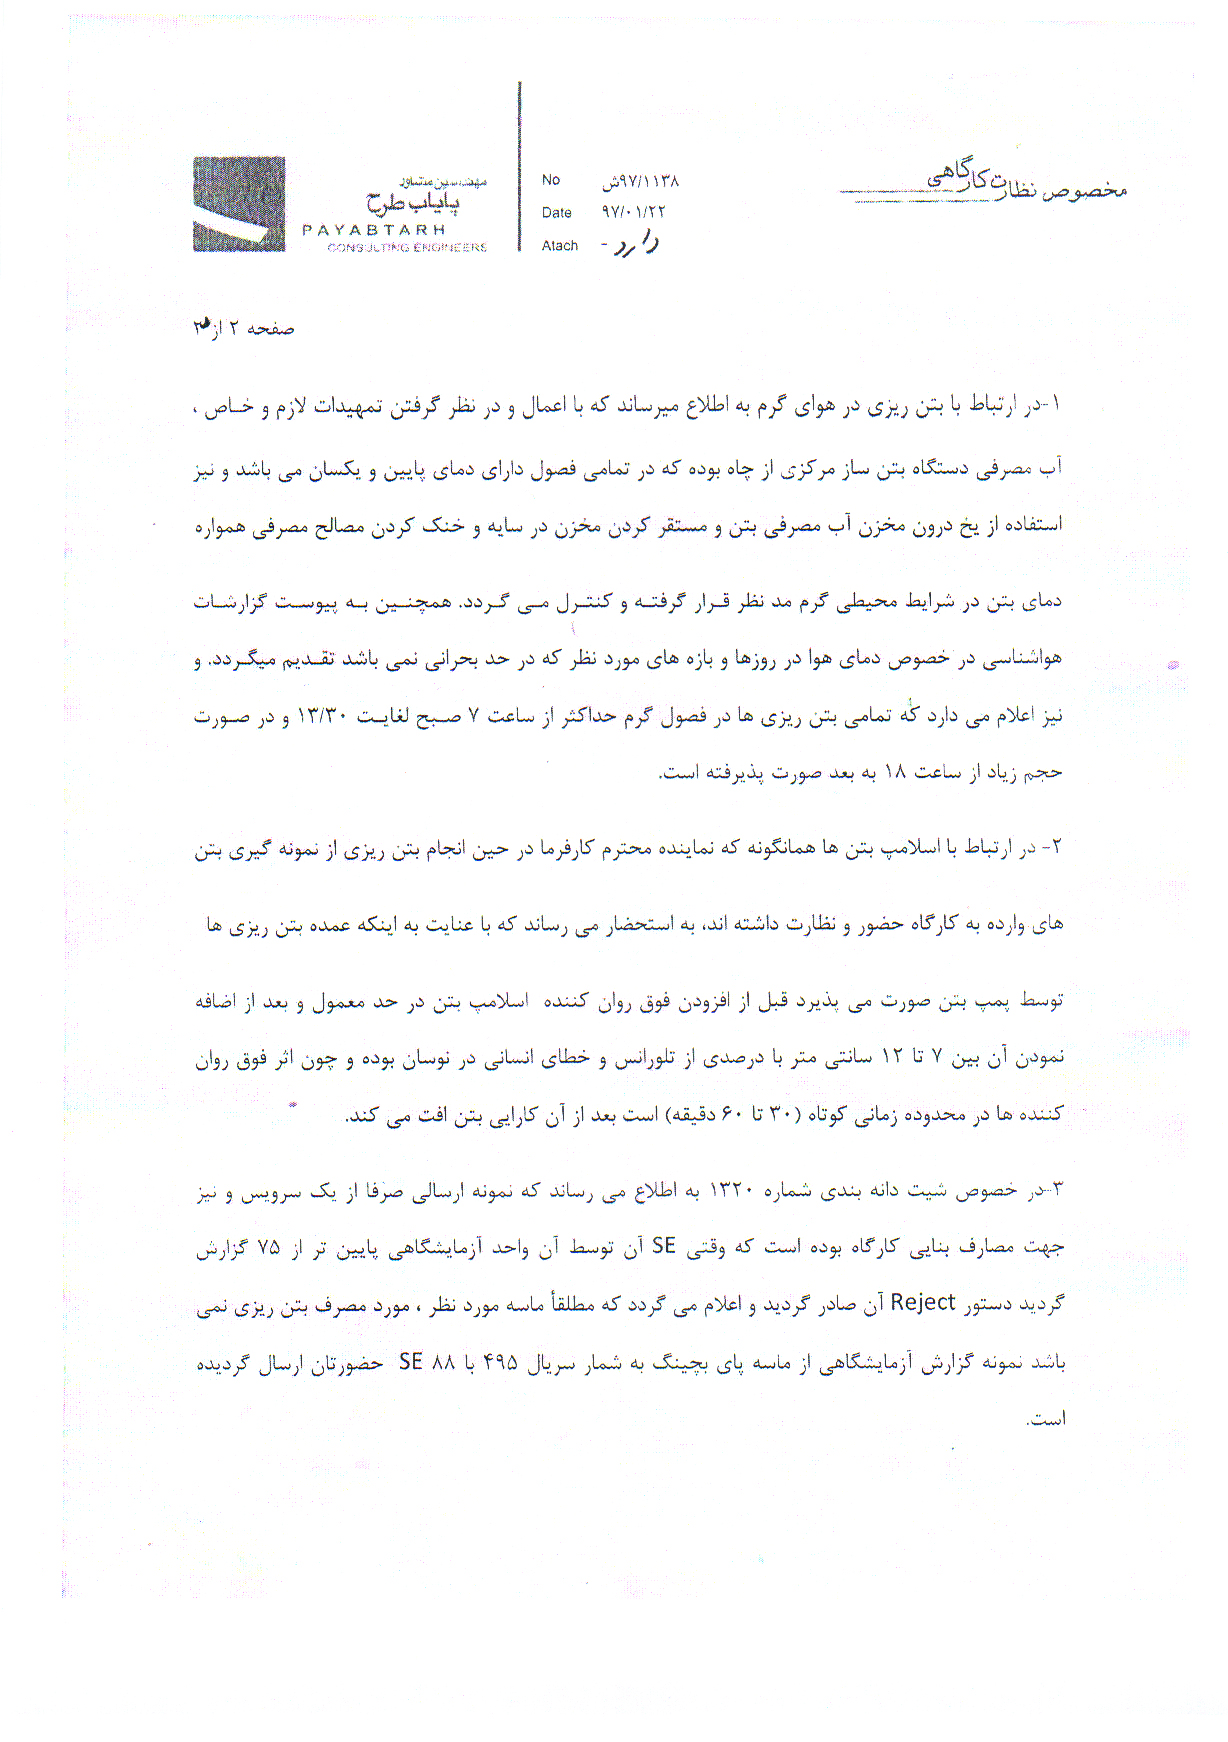 مخصوص نظارت کارگاهی
مهندسین مشاور
پایاب طرح
PAYABTARH
CONSULTING ENGINEERS
No ۹۷/۱۱۳۸ش
Date ۹۷/۰۱/۲۲
Atach - دارد
صفحه ۲ از
۱-در ارتباط با بتن ریزی در هوای گرم به اطلاع میرساند که با اعمال و در نظر گرفتن تمهیدات لازم و خاص ،
آب مصرفی دستگاه بتن ساز مرکزی از چاه بوده که در تمامی فصول دارای دمای پایین و یکسان می باشد و نیز
استفاده از یخ درون مخزن آب مصرفی بتن و مستقر کردن مخزن در سایه و خنک کردن مصالح مصرفی همواره
دمای بتن در شرایط محیطی گرم مد نظر قرار گرفته و کنترل می گردد. همچنین به پیوست گزارشات
هواشناسی در خصوص دمای هوا در روزها و بازه های مورد نظر که در حد بحرانی نمی باشد تقدیم میگردد. و
نیز اعلام می دارد که تمامی بتن ریزی ها در فصول گرم حداکثر از ساعت ۷ صبح لغایت ۱۳/۳۰ و در صورت
حجم زیاد از ساعت ۱۸ به بعد صورت پذیرفته است.
۲- در ارتباط با اسلامپ بتن ها همانگونه که نماینده محترم کارفرما در حین انجام بتن ریزی از نمونه گیری بتن
های وارده به کارگاه حضور و نظارت داشته اند، به استحضار می رساند که با عنایت به اینکه عمده بتن ریزی ها
توسط پمپ بتن صورت می پذیرد قبل از افزودن فوق روان کننده اسلامپ بتن در حد معمول و بعد از اضافه
نمودن آن بین ۷ تا ۱۲ سانتی متر با درصدی از تلورانس و خطای انسانی در نوسان بوده و چون اثر فوق روان
کننده ها در محدوده زمانی کوتاه (۳۰ تا ۶۰ دقیقه) است بعد از آن کارایی بتن افت می کند.
۳-در خصوص شیت دانه بندی شماره ۱۳۲۰ به اطلاع می رساند که نمونه ارسالی صرفا از یک سرویس و نیز
جهت مصارف بنایی کارگاه بوده است که وقتی SE آن توسط آن واحد آزمایشگاهی پایین تر از ۷۵ گزارش
گردید دستور Reject آن صادر گردید و اعلام می گردد که مطلقأ ماسه مورد نظر ، مورد مصرف بتن ریزی نمی
باشد نمونه گزارش آزمایشگاهی از ماسه پای بچینگ به شمار سریال ۴۹۵ با SE ۸۸ حضورتان ارسال گردیده
است.